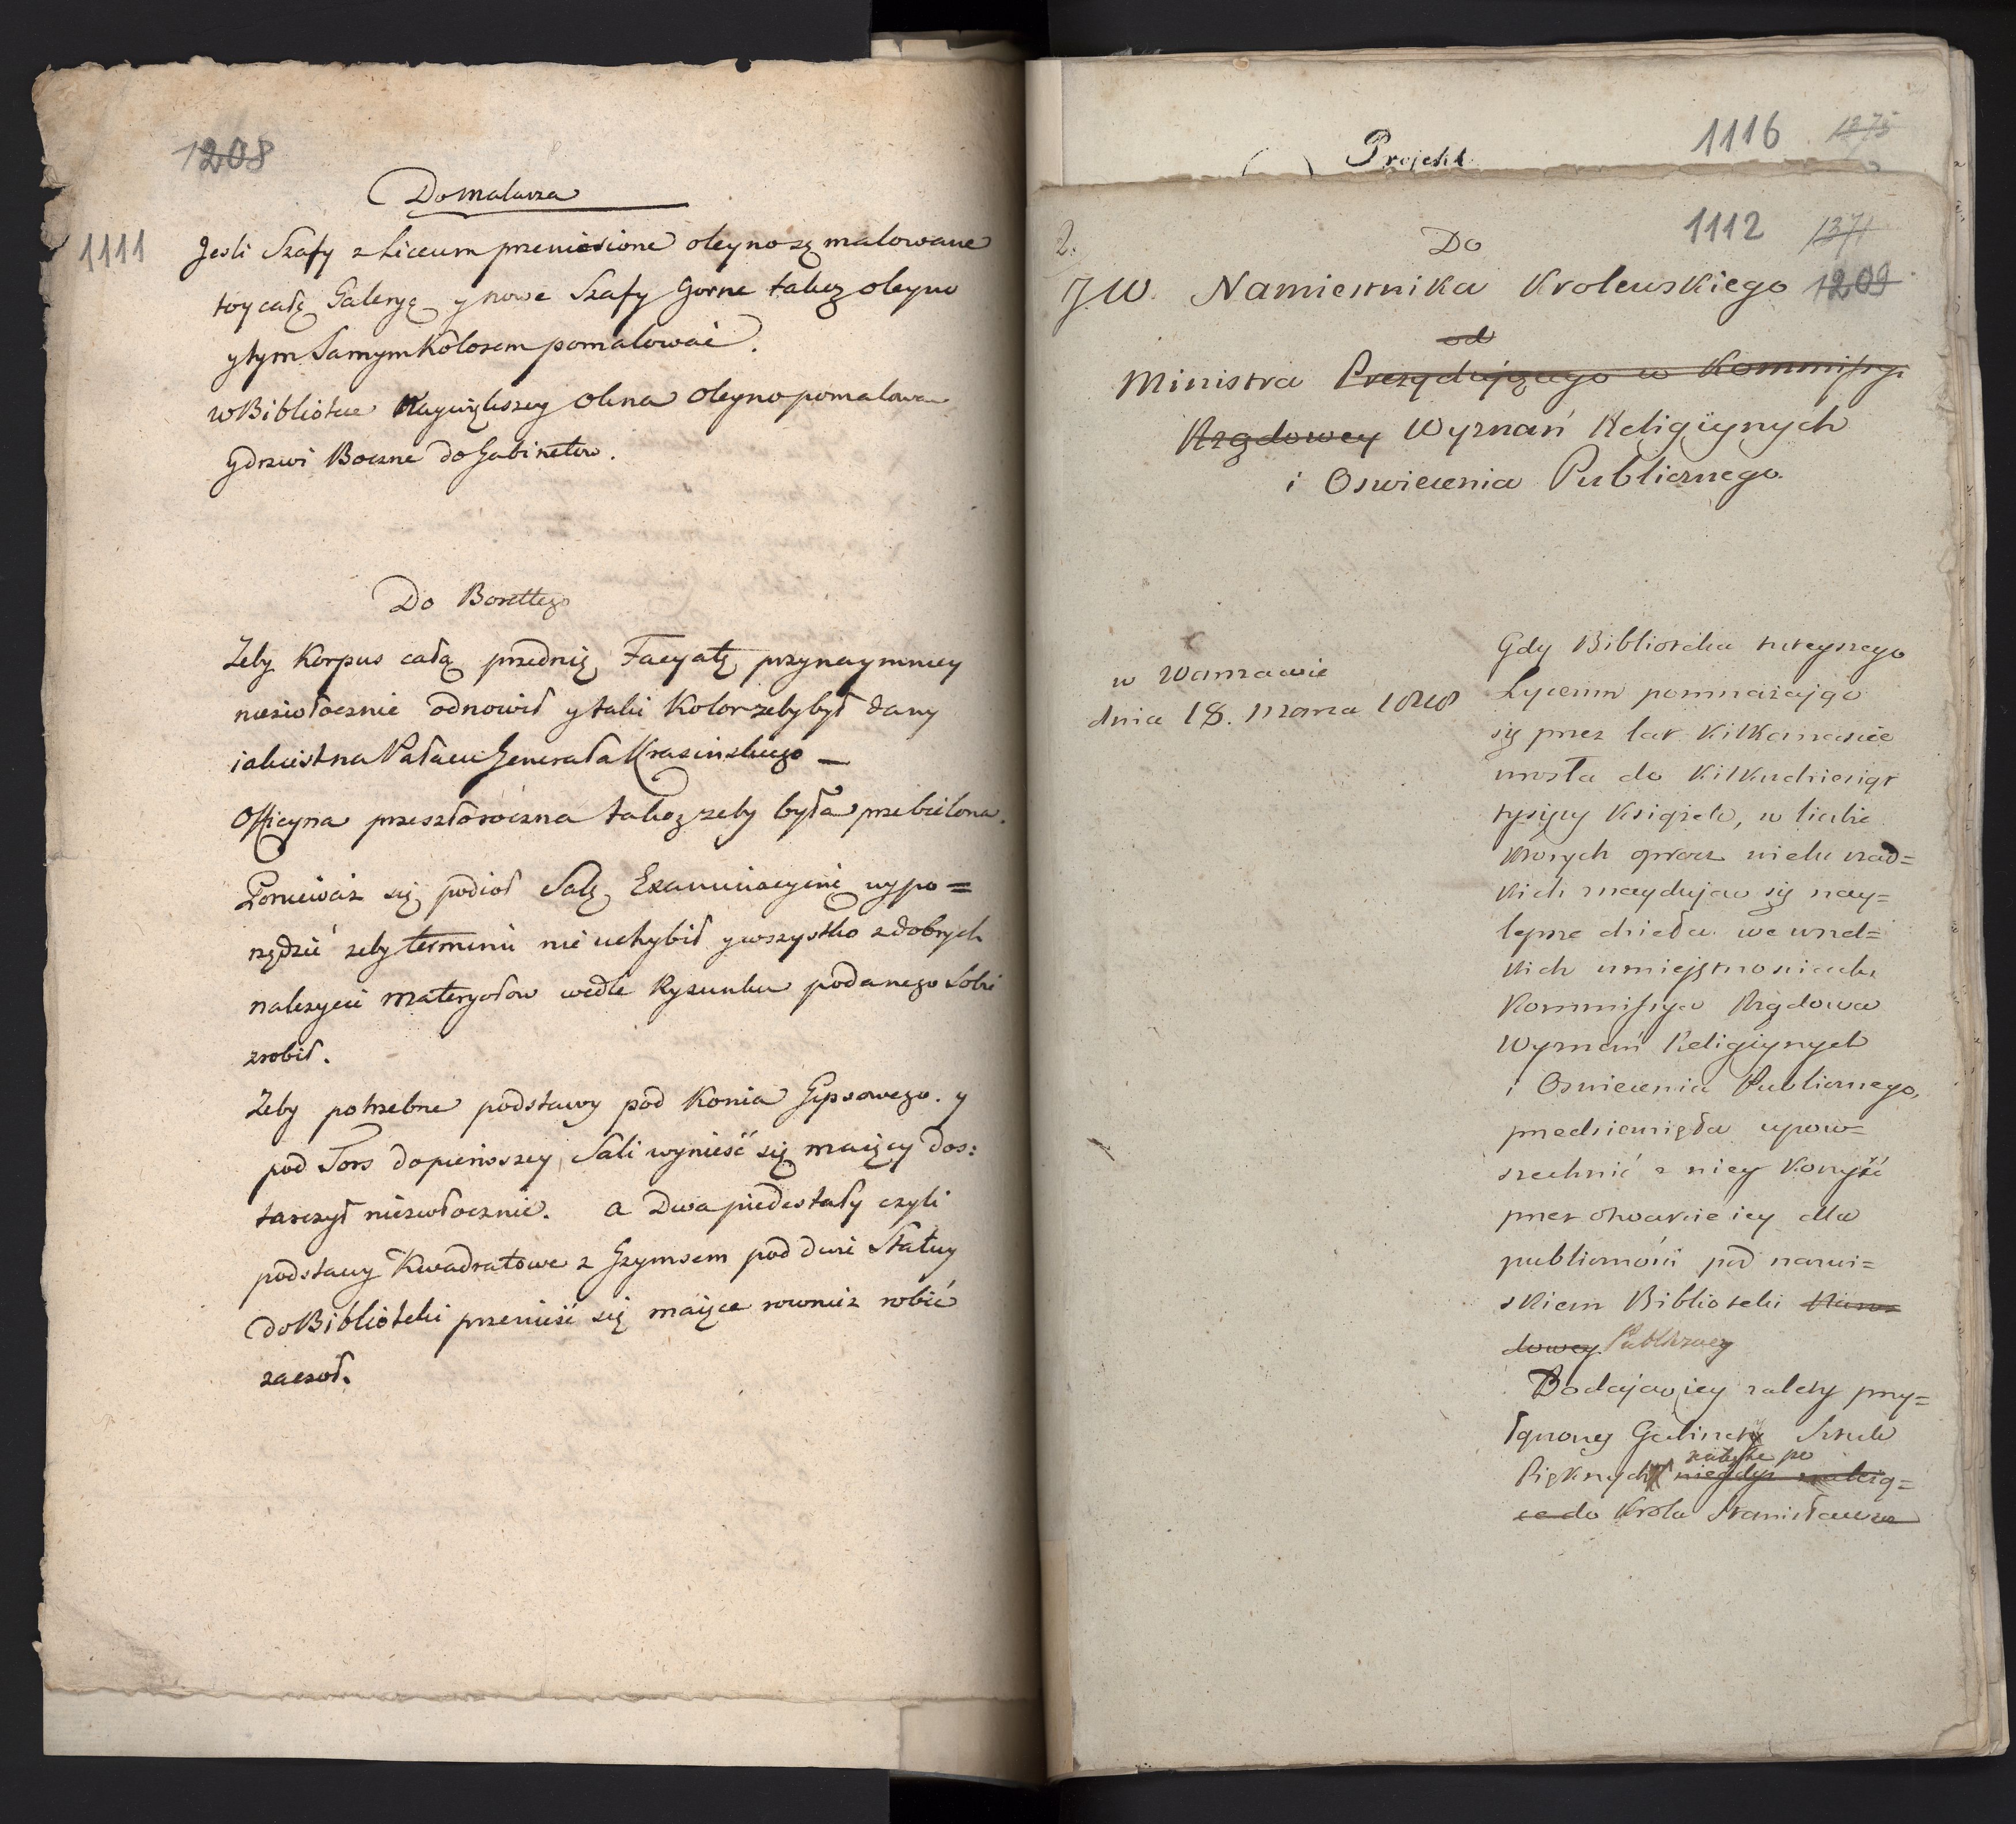 1208
Do Malarza
1111
Jesli Szafy z Liceum przeniesione oleyno są malowane
toy całą Galeryę y nowe Szafy Gorne takoz oleyno
y tym Samym Kolorem pomalować.
w Bibliotece Naywiększey okna oleyno pomalowa
y drzwi Boczne do Gabinetow.
Do Borettego
Zeby Korpus całą przednią Facyatę przynaymniey
niezwłocznie odnowił y taki Kolor zeby był dany
iaki iest na Pałacu Generała Krasinskiego —
Officyna przeszłoroczna takoz zeby była przebielona.
Poniewaz się podioł Salę Examinacyiną wypo=
rządzić zeby terminu nie uchybił y wszystko z dobrych
nalezycie materyałow wedle Rysunku podanego sobie
zrobił.
Zeby potrzebne podstawy pod Konia Gipsowego. y
pod Tors do pierwszey Sali wynieść się maiący dos:
tarczył niezwłocznie. a Dwa piedestały czyli
podstawy Kwadratowe z Gzymsem pod dwie Statuy
do Biblioteki przenieść się maiące rowniez robić
zaczoł.
Projekt
1116 1275
2.
1112 1371
Do
JW. Namiestnika Krolewskiego 1209
od
Ministra Prezydującego w Kommissyi
Rządowey Wyznań Religiynych
i Oswiecenia Publicznego.
w Warszawie
dnia 18. Marca 1818
Gdy Biblioteka tuteyszego
Lyceum pomnażając
się przez lat kilkanascie
urosła do kilkudziesiąt
tysięcy książek, w liczbie
ktorych oprocz wielu rzad=
kich znaydują się nay=
lepsze dzieła we wszel=
kich umiejętnosciach
Kommissya Rządowa
Wyznań Religiynych
i Oswiecenia Publicznego,
przedsiewzięła upow=
szechnić z niey korzyść
przez otwarcie iey dla
publicznosci pod nazwi=
skiem Biblioteki Naro=
dowey Publiczney
Dodając iey zalety przy=
łączoney Gabinety Sztuk
zabytke po
Pięknych niegdys należą=
ce do Krola Stanisława